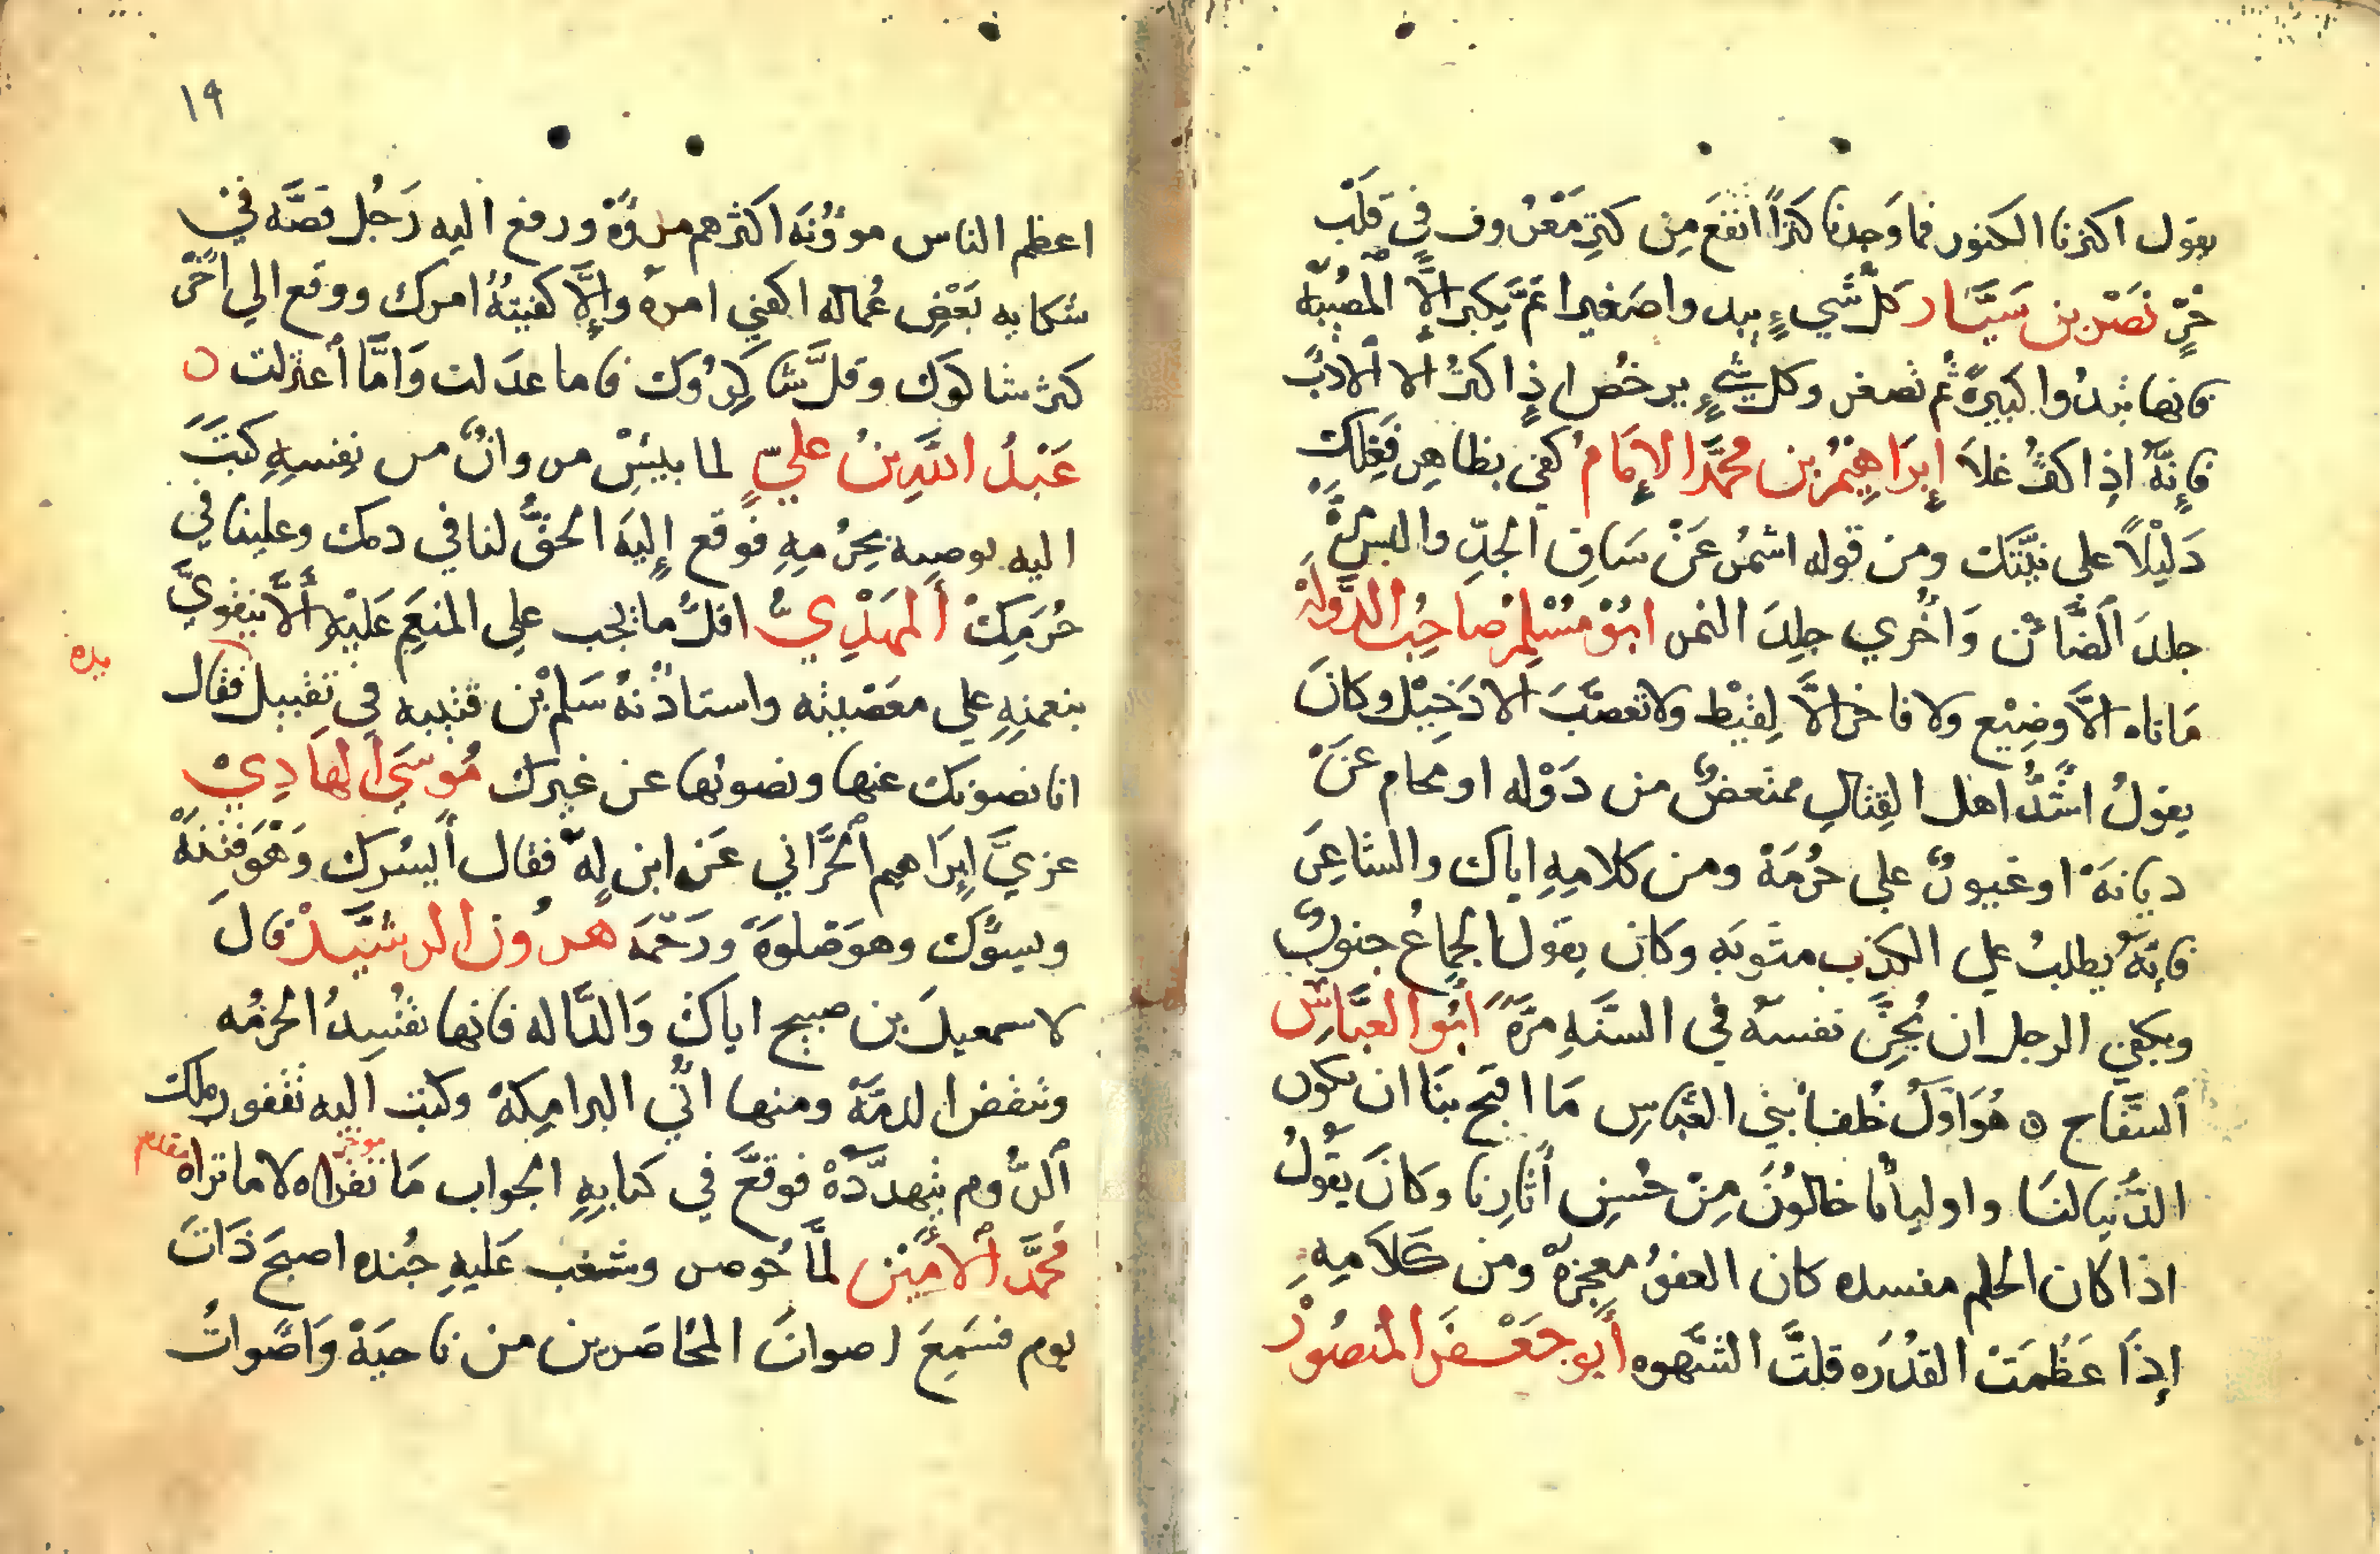 يقول اكنزنا الكنوز فما وَجدنا كنزاً انفعَ مِن كنزِ مَعْرُوف في قلْب
حُرٍّ نَصْر بن سَيَّار كلّ شَيءٍ يبدوا صَغيرا ثمَّ يكبر الَّا المصيبه
فانها تبدُوا كبيرةً ثم تصغر وكل شيءٍ يرخُص اذا كثُر الا الادبُ
فإنّهُ اذا كثُر غلا إبرَاهِيمُ بن محمَّد الإمَامُ كفي بظاهِر فِعْلِك
دَليْلًا علي نيّتك ومن قوله اشمُر عَنْ سَاقِ الجدِّ والبس مرَّةً
جلدَ الضَّائن وَاخُري جِلدَ النمر ابُوْ مُسْلِمْ صَاحِبُ الدَّولَة
مَا تاه الَّا وضِيْع ولا فاخر الَّا لِقيْط ولا تعصَّبَ الا دَخِيْل وكانَ
يقولُ اشَدُّ اهل القِتالِ ممتعضٌ من دَوْله او محام عَنْ
ديانهَ او غيورٌ علي حُرمَة ومن كلامِهِ اياك والشاعِرَ
فإنّهُ يطلبُ علي الكذب مثوبَه وكان يقول الجماعُ جنونٌ
ويكفي الرجل ان يُجنَّ نفسهُ في السنَهِ مرَّةً ابُو العبَّاسِ
السَّفاح ٥ هُوَ اوّلُ خلفا بني العبَّاسِ مَا اقبح بنَا ان تكون
الدُّنيا لنَا واولياؤنا خالوُنَ مِنْ حُسنِ أثارِنا وكانَ يقُولُ
اذا كان الحلم مفسده كان العفوُ معجزةً ومن كَلامِهِ
إذَا عَظُمَتْ القدُرَه قلتَّ الشَّهوه أبو جعْفر المنصُورْ
١٩
اعظم الناس موؤُنَه اكثرهم مروُّة ورفع اليه رَجُل قصَّه في
شكايه بَعْضِ عُماله اكفني امره وإلَّا كفيتهُ امرك ووقع الي اخَرَ
كثر شاكوك وقلَّ شاكِرُوك فاما عدَلت وَامَّا اعتزلت ٥
عَبْدُ اللّهِ بنُ عليّ لما يَئِسَ مروانٌ من نفسِهِ كتبَ
اليه يوصيه بحُرمِهِ فوَقع إليَه الحقُّ لنا في دمك وعلينا في
حُرَمِكْ المَهْدِيُّ اقلُّ ما يجب علي المنعَم عَليْهِ ألَّا يتقويَّ
بنعمتِهِ علي معَصْيته واستاذنهُ سَلمْ بْن قتيبه في تقبيل فقال
يده
انا نصونك عنها ونصونها عن غيرك مُوسَي الهَادِيْ
عزيَّ ابرَاهيم الحرَّاني عَن ابن لهُ فقال أيسُرك وَهْوَ فتنَهْ
ويسوُك وهوَ صَلوَة ورَحْمَة هرُون الرشيْدْ قالَ
لاسمعيلَ بن صبيح اياكَ وَالدَّاله فانها تفسِدُ الحرمُه
وتنقض الذمَّة ومنها اتي البرامِكة وكتب اليه نقفور ملك
الرُّوم يتهدَّدهْ فوقعَّ في كتابِهِ الجواب مَا تقراه لا ما تراه
موخر
مقدم
مُحمَّد الأمِيْن لمَّا حُوصر وشغب عَليهِ جُنده اصبحَ ذَاتَ
يوم فسَمِعَ اصواتَ المحَاصَرين من ناحيَة وَاصْواتُ